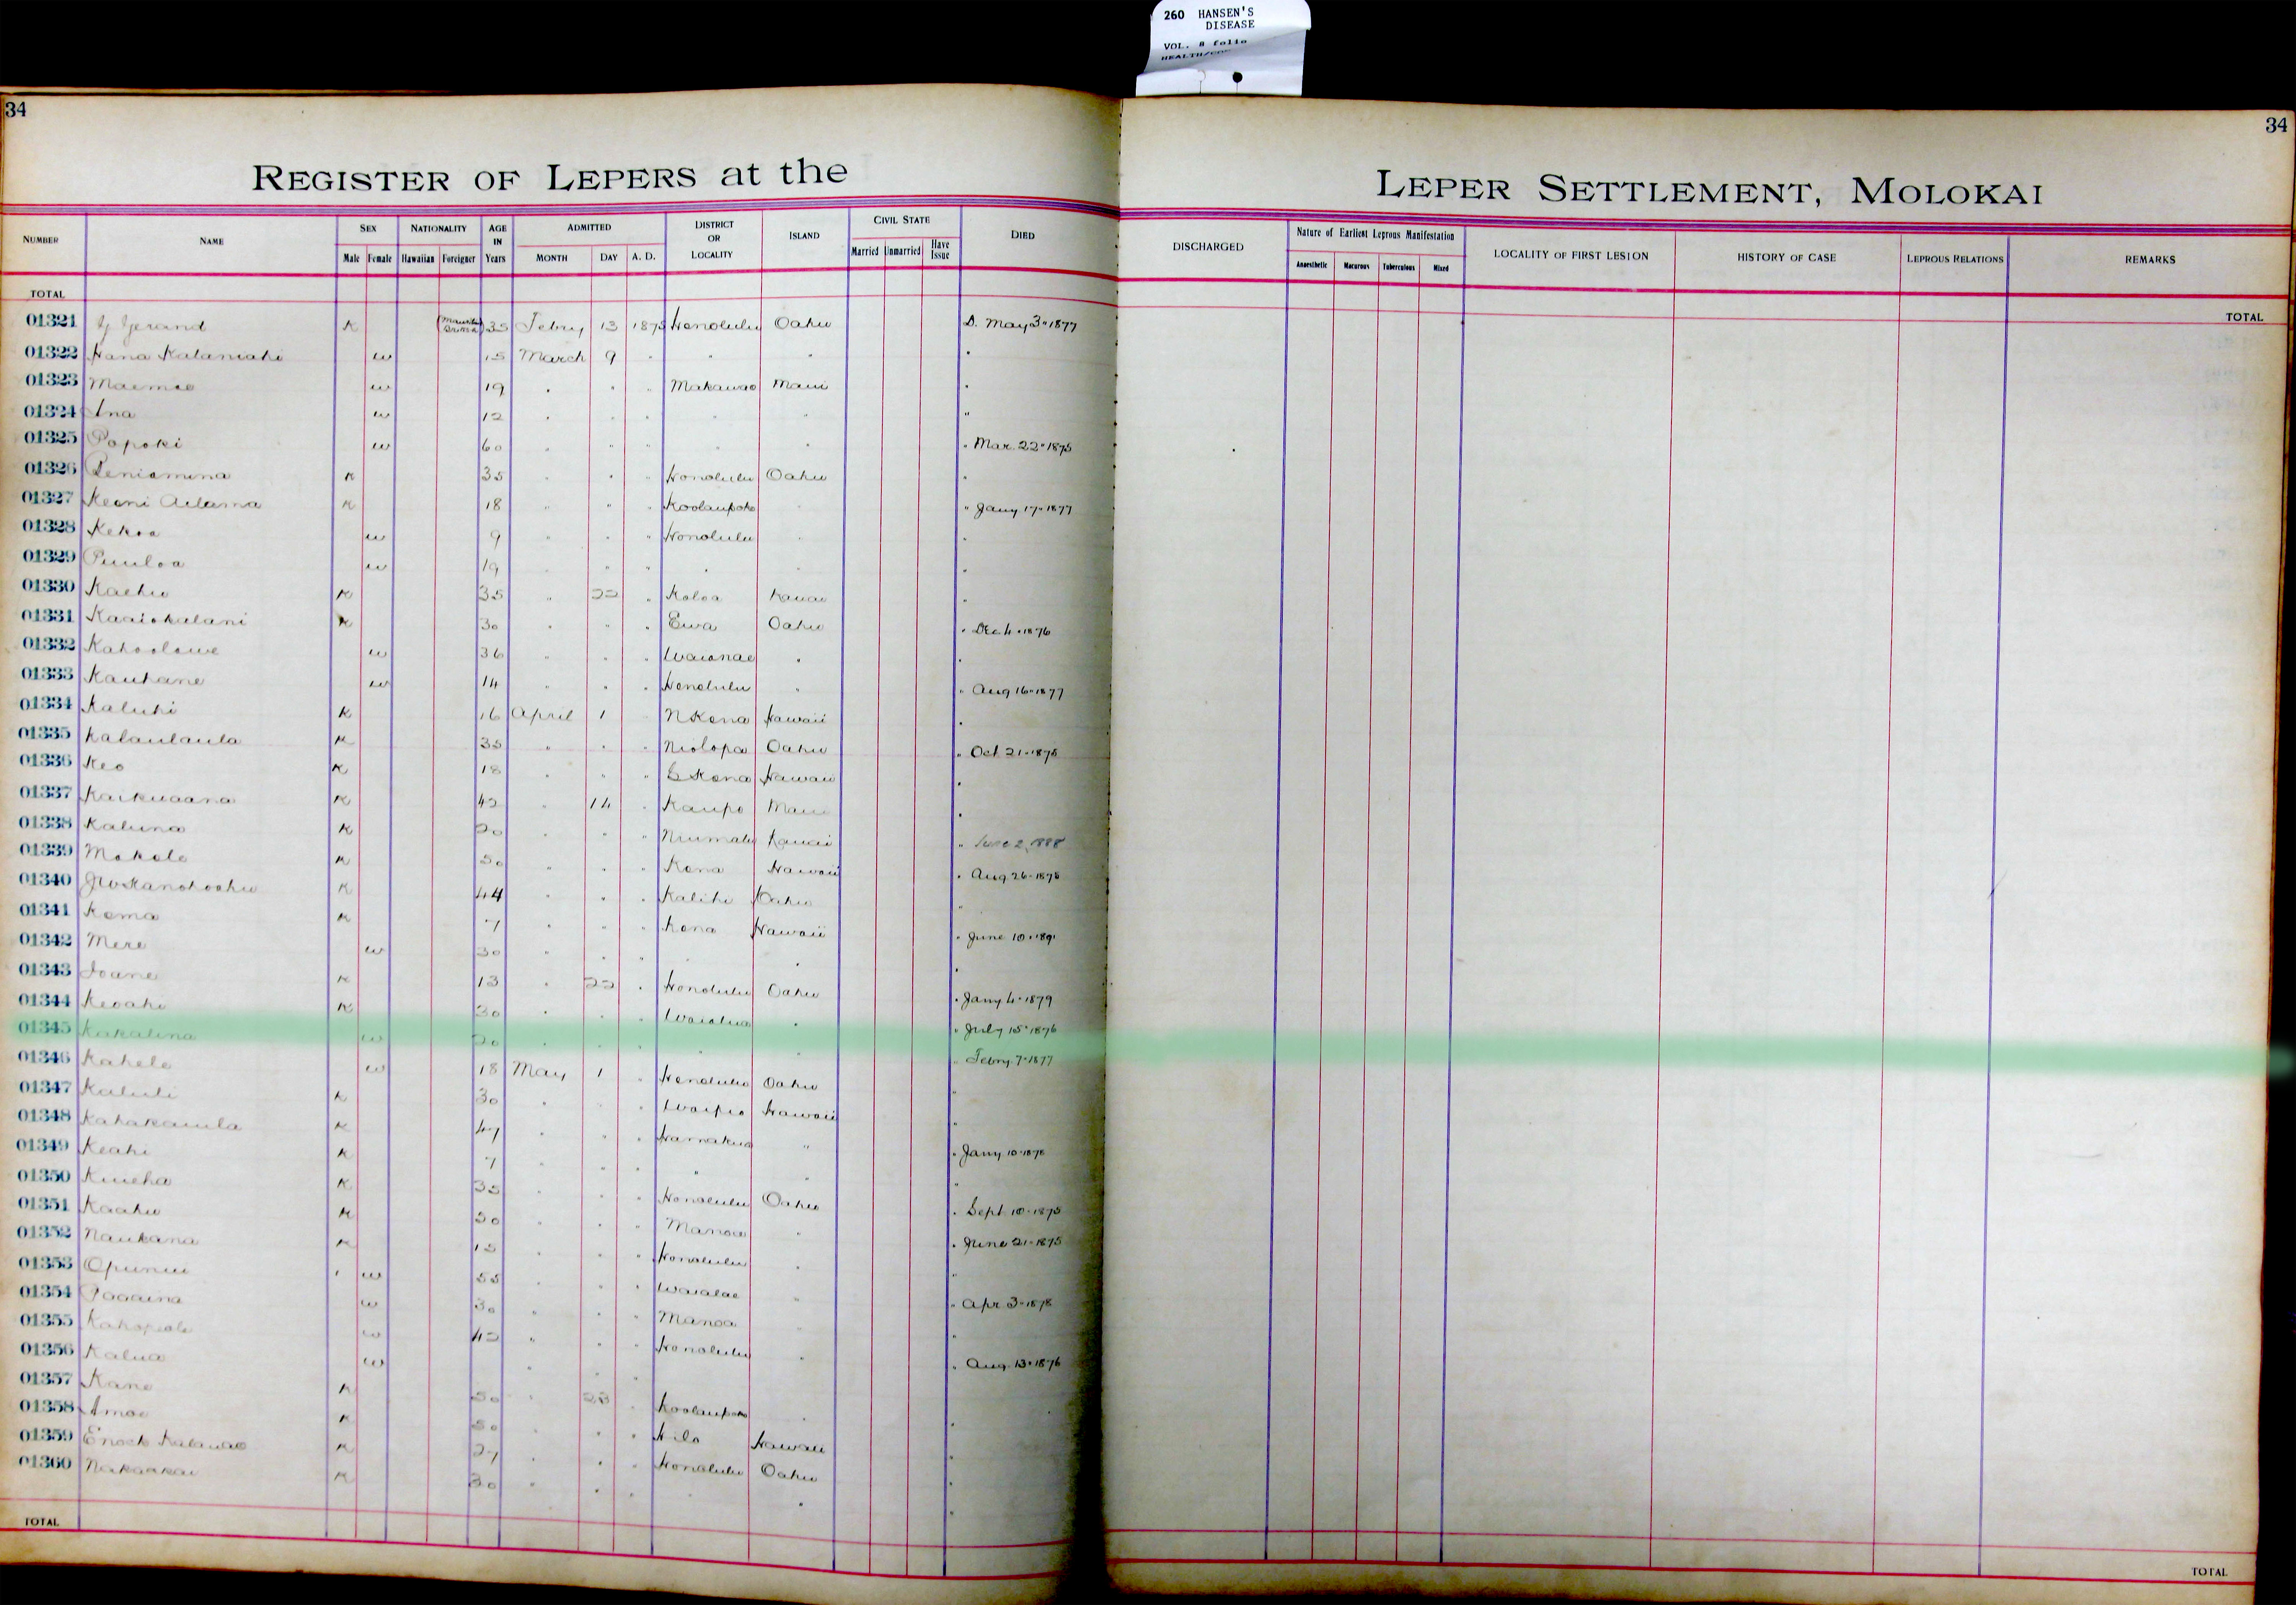 260 HANSEN'S
DISEASE
VOL. 8 folio
34
34
REGISTER OF LEPERS at the LEPER SETTLEMENT, MOLOKAI
NUMBER NAME SEX Male Female NATIONALITY Hawaiian Foreigner AGE IN Years ADMITTED MONTH DAY A. D. DISTRICT OR LOCALITY ISLAND CIVIL STATE Married Unmarried Have Issue DIED DISCHARGED Nature of Earliest Leprous Manifestation Anaesthetic Macurous Tuberculous Mixed LOCALITY OF FIRST LESION HISTORY OF CASE LEPROUS RELATIONS REMARKS
TOTAL TOTAL
01321 Gerand K 35 Febry 13 1875 Honolulu Oahu D. May 3 " 1877
01322 Hana Kalaniahi w 15 March 9 " " " "
01323 Maemae w 19 " " " Makawao Maui "
01324 Ina w 12 " " " " " "
01325 Popoki w 60 " " " " " " Mar. 22 " 1875
01326 Peniamina K 35 " " " Honolulu Oahu "
01327 Keoni Adama K 18 " " " Koolaupoko " " Jany 17 " 1877
01328 Kekoa w 9 " " " Honolulu " "
01329 Puuloa w 19 " " " " " "
01330 Kaehu K 35 " 22 " Koloa Kauai "
01331 Kaaiokalani K 30 " " " Ewa Oahu " Dec 4 " 1876
01332 Kahoolawe w 36 " " " Waianae " "
01333 Kauhane w 14 " " " Honolulu " " Aug 16 " 1877
01334 Kaluhi K 16 April 1 " N Kona Hawaii "
01335 Kalaulaula K 35 " " " Niolopa Oahu " Oct 21 " 1875
01336 Keo K 18 " " " S Kona Hawaii "
01337 Kaikuaana K 42 " 14 " Kaupo Maui "
01338 Kaluna K 20 " " " Niumalu Kauai " June 2, 1888
01339 Mokole K 50 " " " Kona Hawaii " Aug 26 " 1878
01340 JW Kanohoohu K 44 " " " Kalihi Oahu "
01341 Kama K 7 " " " Kona Hawaii " June 10 " 1891
01342 Mere w 30 " " " " " "
01343 Ioane K 13 " 22 " Honolulu Oahu " Jany 4 " 1879
01344 Keoahi K 30 " " " Waialua " " July 15 " 1876
01345 Kakalina w 20 " " " " " " Febry 7 " 1877
01346 Kahele w 18 May 1 " Honolulu Oahu "
01347 Kaluli K 30 " " " Waipio Hawaii "
01348 Kahakauila K 47 " " " Hamakua " " Jany 10 " 1878
01349 Keahi K 7 " " " " " "
01350 Kineha K 35 " " " Honolulu Oahu " Sept 10 " 1875
01351 Kaahu K 50 " " " Manoa " " June 21 " 1875
01352 Naukana K 15 " " " Honolulu " "
01353 Opunui w 55 " " " Waialae " " Apr 3 " 1878
01354 Paaaina w 30 " " " Manoa " "
01355 Kahopule w 42 " " " Honolulu " " Aug 13 " 1876
01356 Kalua w " " "
01357 Kane K 50 " 28 " Koolaupoko " "
01358 Amoe K 50 " " " Hilo Hawaii "
01359 Enoch Kalauao K 27 " " " Honolulu Oahu "
01360 Nakaakai K 30 " " " " " "
TOTAL TOTAL